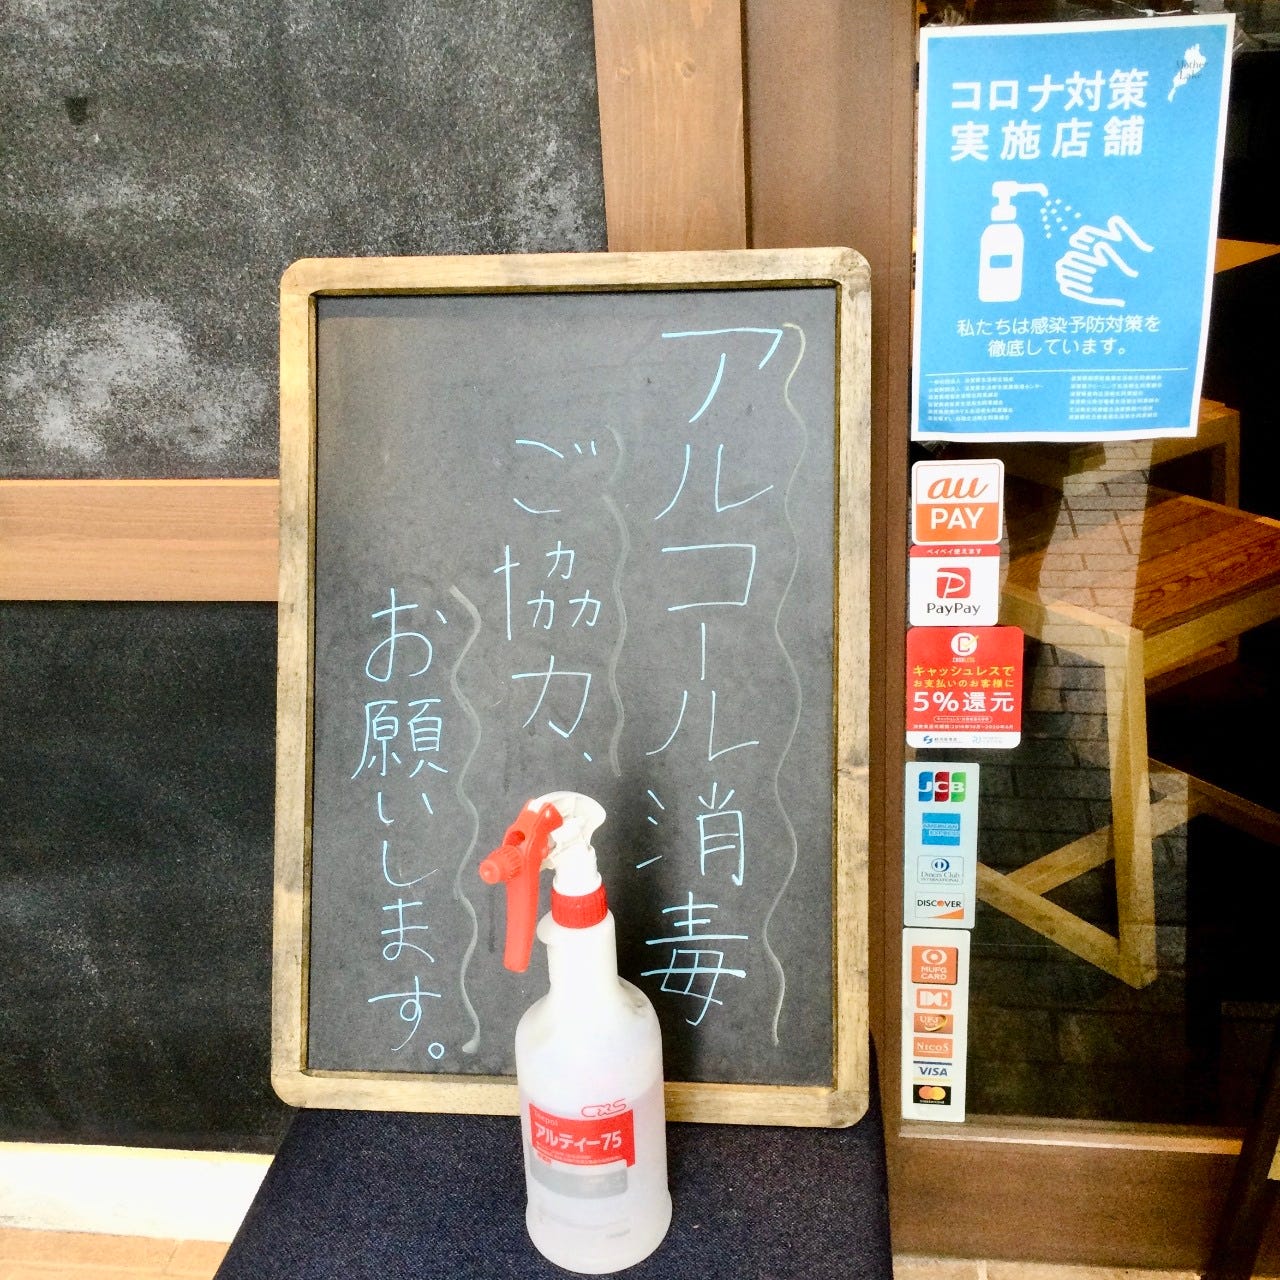 アルコール消毒
ご協力、
お願いします。
コロナ対策
実施店舗
Mother
Lake
私たちは感染予防対策を
徹底しています。
au
PAY
ペイペイ使えます
PayPay
キャッシュレスで
お支払いのお客様に
5%還元
JCB
AMERICAN
EXPRESS
Diners Club
INTERNATIONAL
DISCOVER
MUFG
CARD
DC
UFJ
NICOS
VISA
mastercard
アルティー75